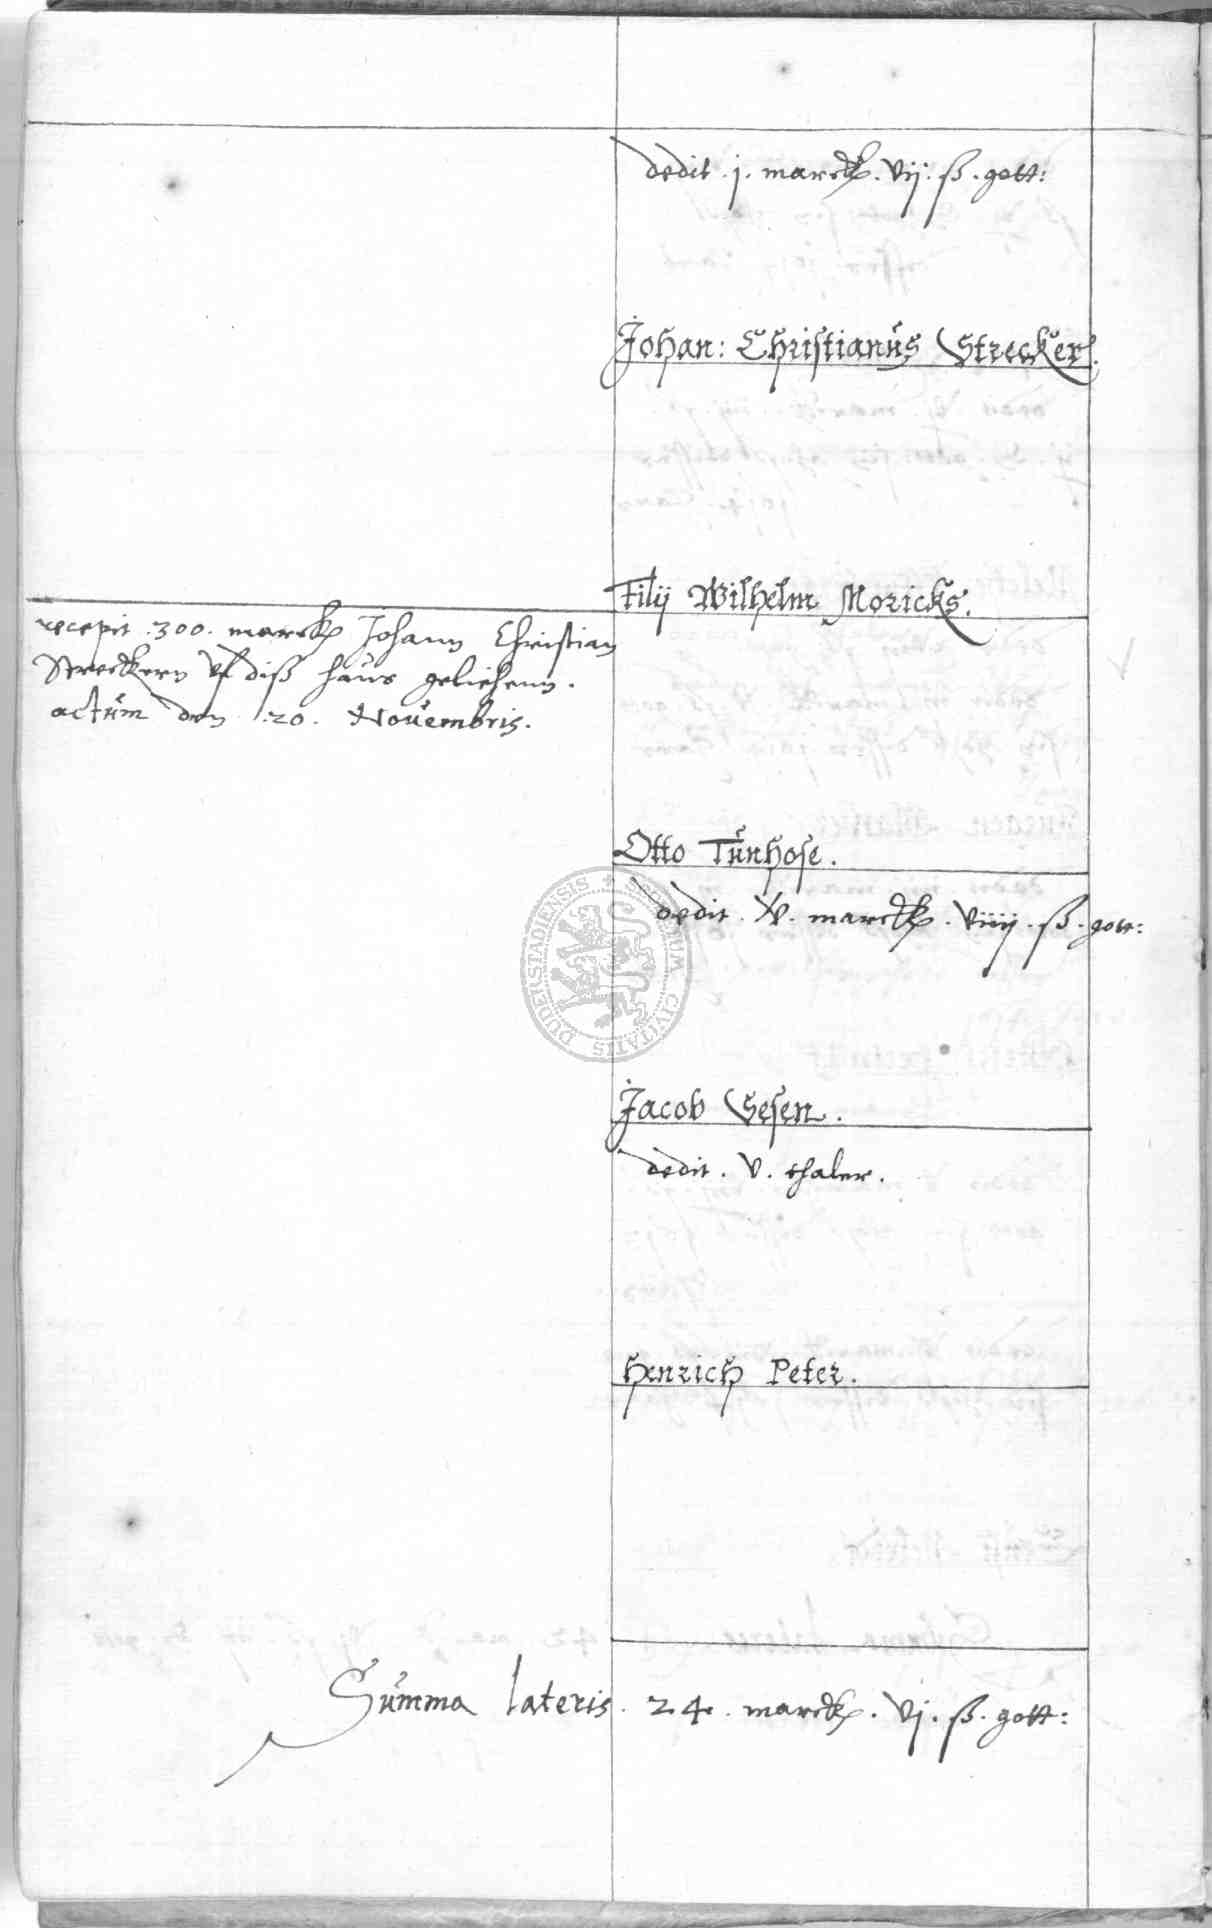 dedit . j . marck . vij . ß . gott:
Johan: Christianus Strecker.
Filij Wilhelm Moricks.
recepit . 300 . marck Johann Christian
Streckern vf diß haus geliehenn .
actum den . 20 . Novembris.
Otto Tunhose .
dedit . X . marck . viiij . ß . gott:
Jacob Sesen .
dedit . V . thaler .
Henrich Peter .
Summa lateris . 24 . marck . vj . ß . gott:
SIGILLUM CIVITATIS DUDERSTADIENSIS